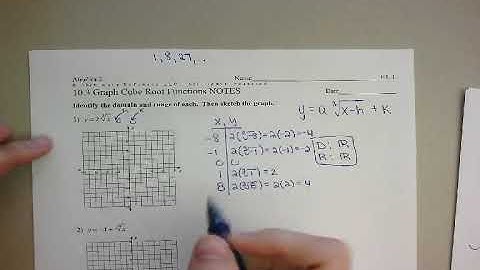 1, 8, 27, ...
Algebra 2
Name
10.3 Graph Cube Root Functions NOTES
Date
Identify the domain and range of each. Then sketch the graph.
y = a ∛x-h + k
1) y = 2∛x
x, y
-8 | 2(∛-8) = 2(-2) = -4
-1 | 2(∛-1) = 2(-1) = -2
0 | 0
1 | 2(∛1) = 2
8 | 2(∛8) = 2(2) = 4
D: ℝ
R: ℝ
2)